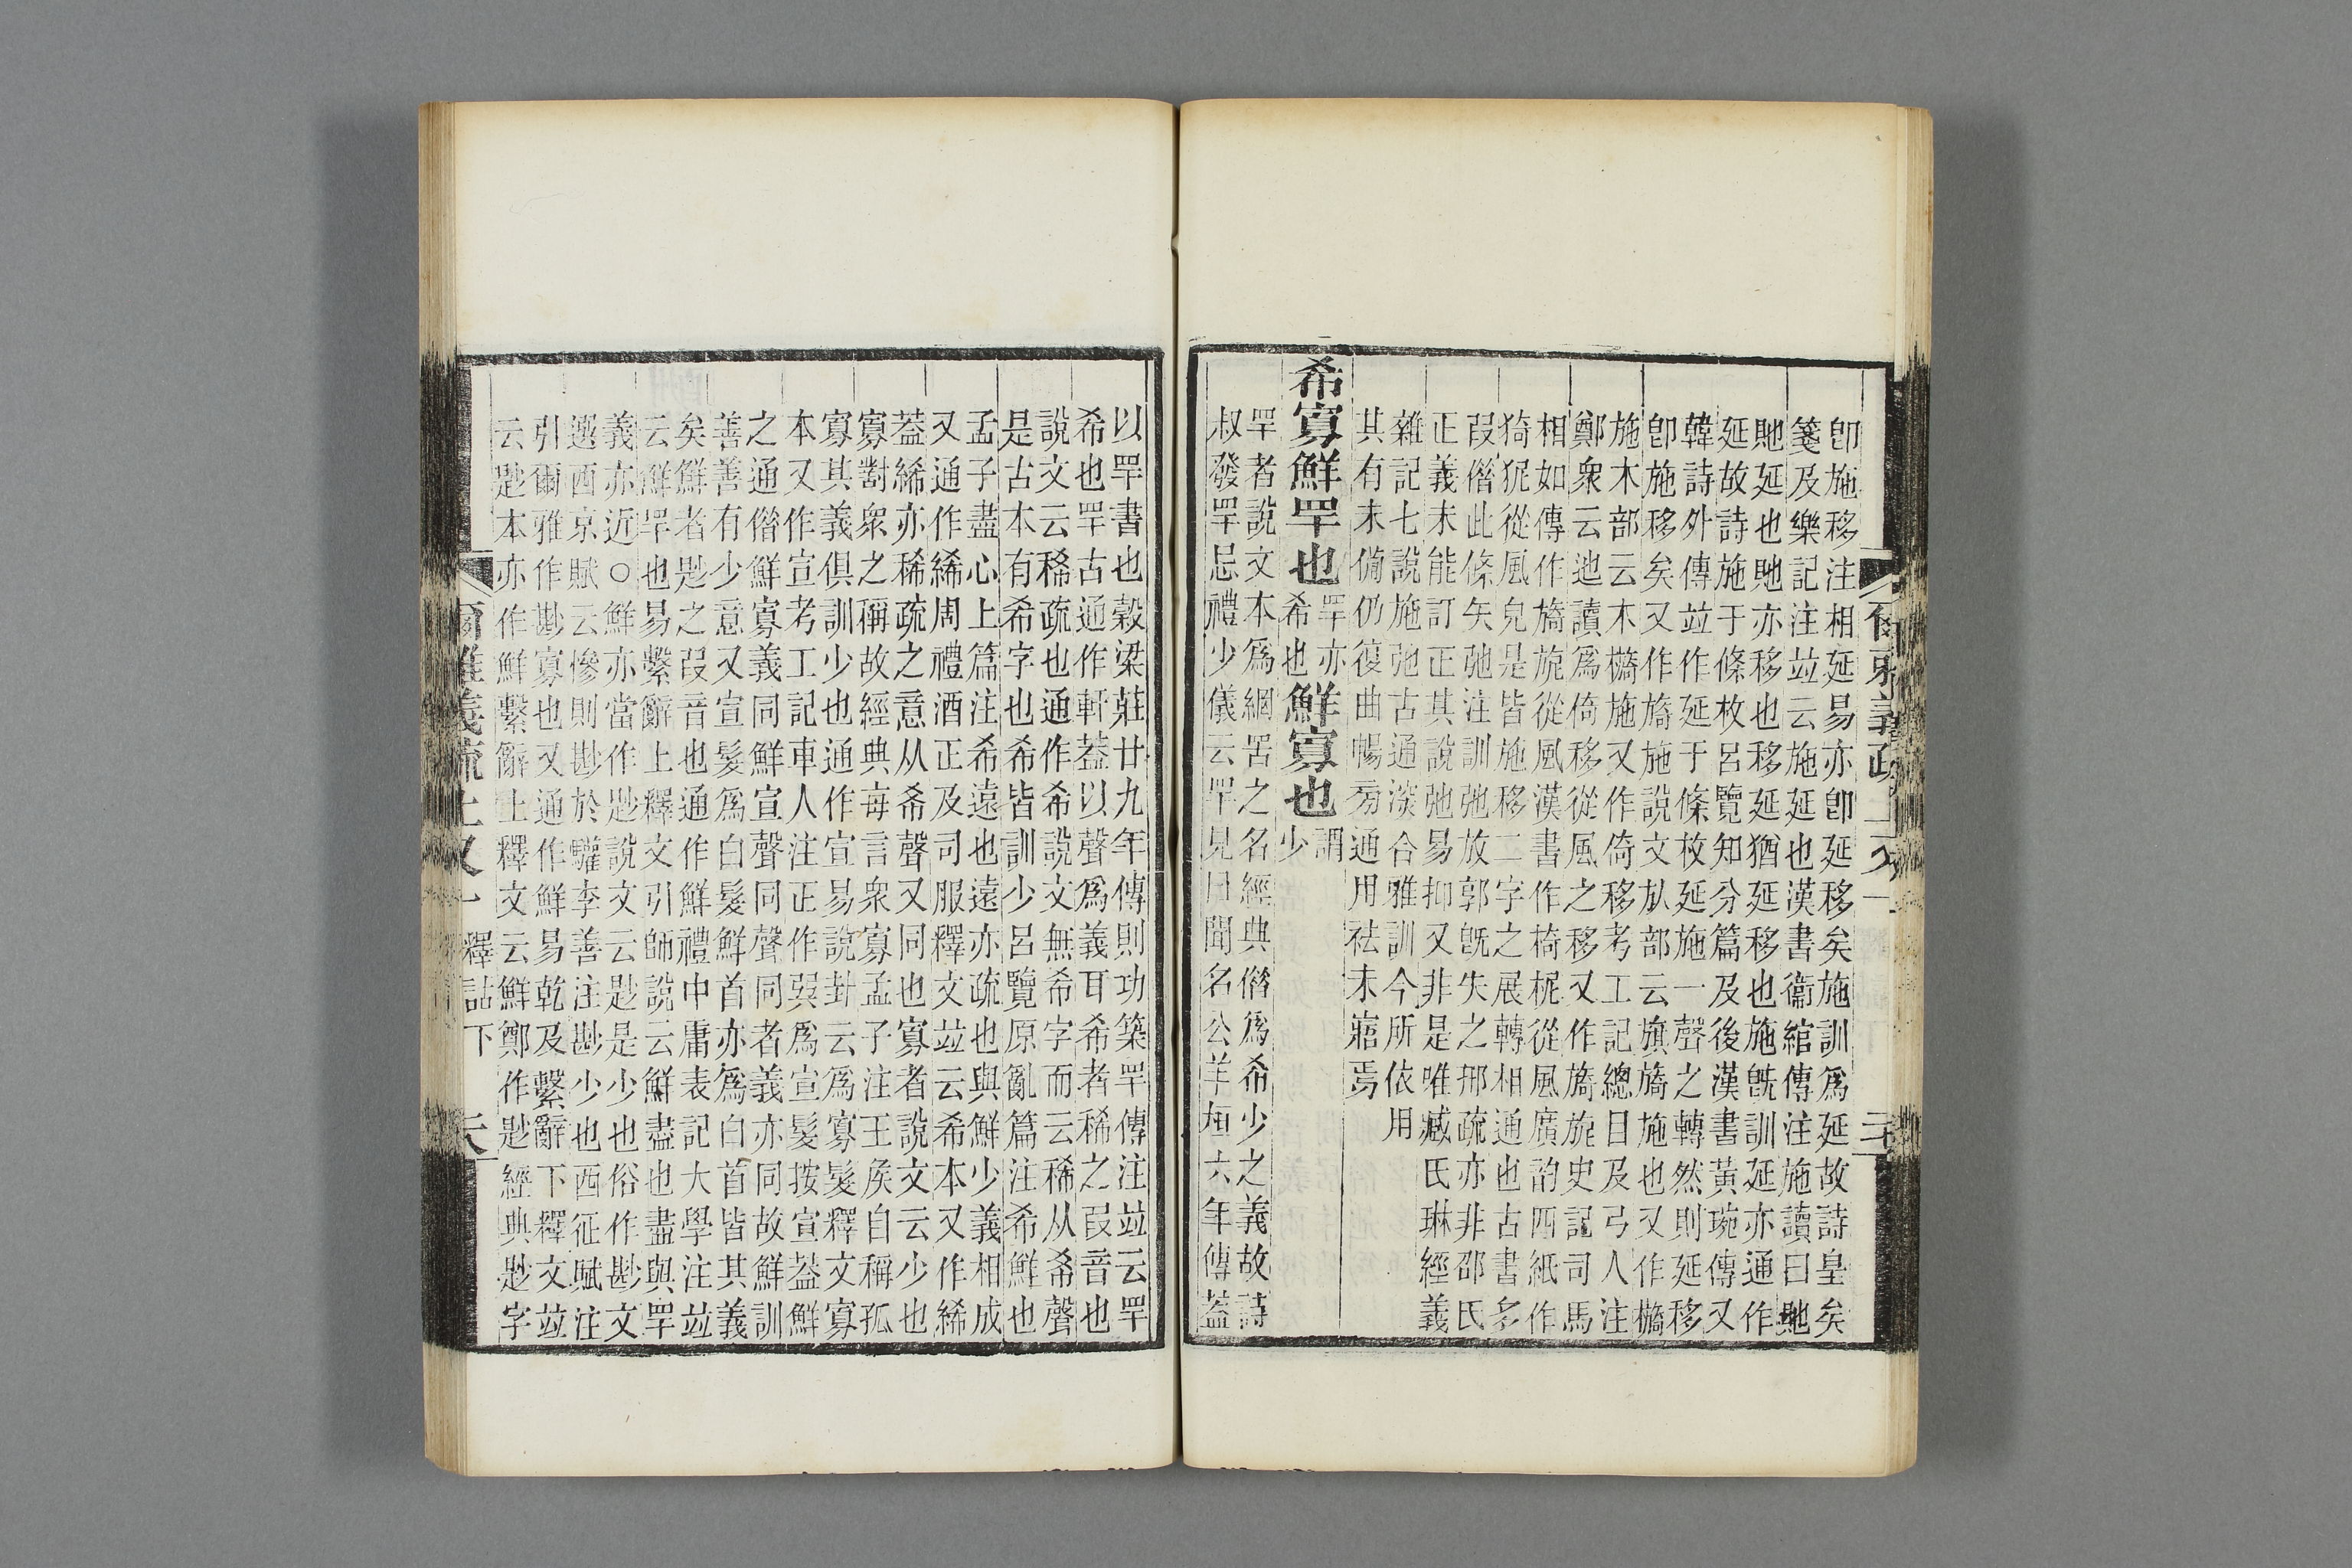 爾雅義疏上又一
卽施移注相延易亦卽延移矣施訓爲延故詩皇矣
箋及樂記注竝云施延也漢書衞綰傳注施讀曰貤
貤延也貤亦移也移延猶延移也施旣訓延亦通作
延故詩施于條枚呂覽知分篇及後漢書黃琬傳又
韓詩外傳竝作延于條枚延施一聲之轉然則延移
卽施移矣又作旖施說文㫃部云旗旖施也又作檹
施木部云木檹施又作倚移考工記總目及弓人注
鄭衆云迆讀爲倚移從風之移又作旖旎史記司馬
相如傳作旖旎從風漢書作椅柅從風廣韵四紙作
猗狔從風皃是皆施移二字之展轉相通也古書多
叚借此條矢弛注訓弛放郭旣失之邢疏亦非邵氏
正義未能訂正其說弛易抑又非是唯臧氏琳經義
雜記七說施弛古通深合雅訓今所依用
其有未備仍復曲暢旁通用袪未寤焉
希寡鮮罕也罕亦希也鮮寡也謂少
罕者說文本爲網罟之名經典借爲希少之義故詩
叔發罕忌禮少儀云罕見曰聞名公羊桓六年傳蓋
以罕書也穀梁莊廿九年傳則功築罕傳注竝云罕
希也罕古通作軒蓋以聲爲義耳希者稀之叚音也
說文云稀疏也通作希說文無希字而云稀从希聲
是古本有希字也希皆訓少呂覽原亂篇注希鮮也
孟子盡心上篇注希遠也遠亦疏也與鮮少義相成
又通作絺周禮酒正及司服釋文竝云希本又作絺
蓋絺亦稀疏之意从希聲又同也寡者說文云少也
寡對衆之稱故經典每言衆寡孟子注王侯自稱孤
寡其義俱訓少也通作宣易說卦云爲寡髮釋文寡
本又作宣考工記車人注正作巽爲宣髮按宣蓋鮮
之通借鮮寡義同鮮宣聲同聲同者義亦同故鮮訓
善善有少意又宣髮爲白髮鮮首亦爲白首皆其義
矣鮮者尟之叚音也通作鮮禮中庸表記大學注竝
云鮮罕也易繫辭上釋文引師說云鮮盡也盡與罕
義亦近○鮮亦當作尟說文云尟是少也俗作尠文
選西京賦云慘則尠於驩李善注尠少也西征賦注
引爾雅作尠寡也又通作鮮易乾及繫辭下釋文竝
云尟本亦作鮮繫辭上釋文云鮮鄭作尟經典尟字
爾雅義疏上又一 釋詁下